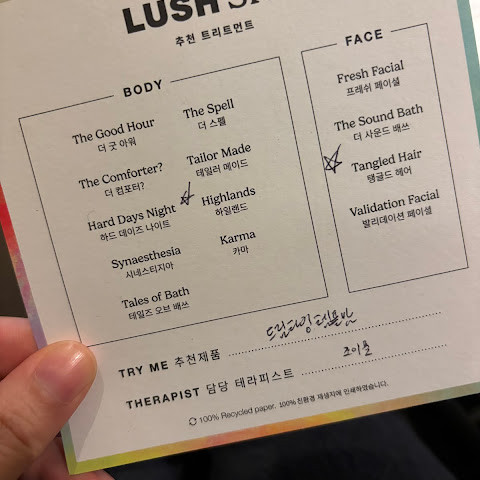 LUSH SP
추천 트리트먼트
BODY
The Good Hour
더 굿 아워
The Spell
더 스펠
The Comforter?
더 컴포터?
Tailor Made
테일러 메이드
Hard Days Night
하드 데이즈 나이트
Highlands
하일랜드
Synaesthesia
시네스티지아
Karma
카마
Tales of Bath
테일즈 오브 배쓰
FACE
Fresh Facial
프레쉬 페이셜
The Sound Bath
더 사운드 배쓰
Tangled Hair
탱글드 헤어
Validation Facial
발리데이션 페이셜
TRY ME 추천제품 드림타임 템플밤
THERAPIST 담당 테라피스트
100% Recycled paper. 100% 친환경 재생지에 인쇄하였습니다.